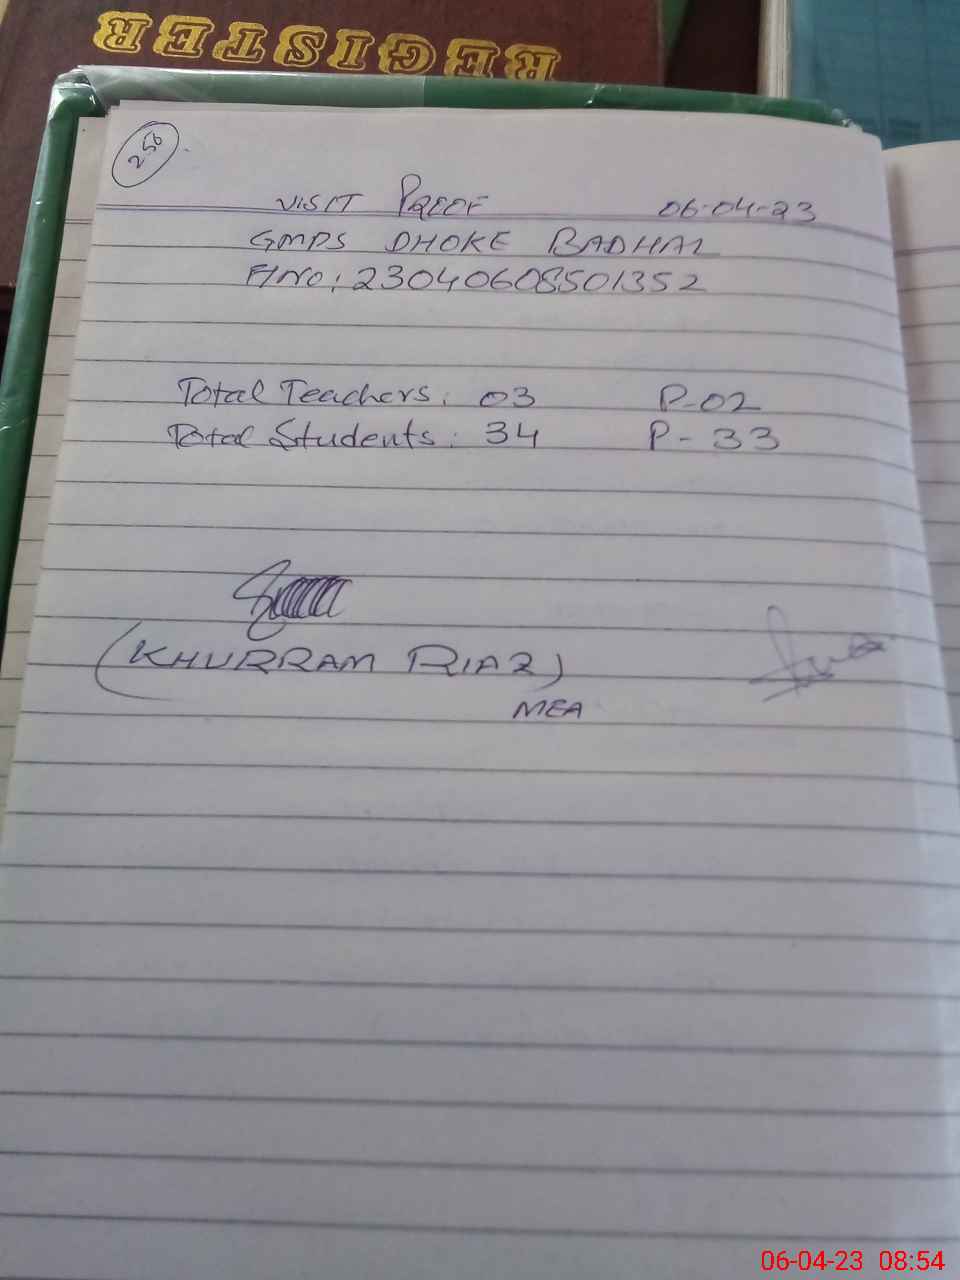 REGISTER
256
VISIT PROOF 06-04-23
GMPS DHOKE BADHAL
F/No: 23040608501352
Total Teachers: 03 P-02
Total Students: 34 P-33
(KHURRAM RIAZ)
MEA
06-04-23 08:54